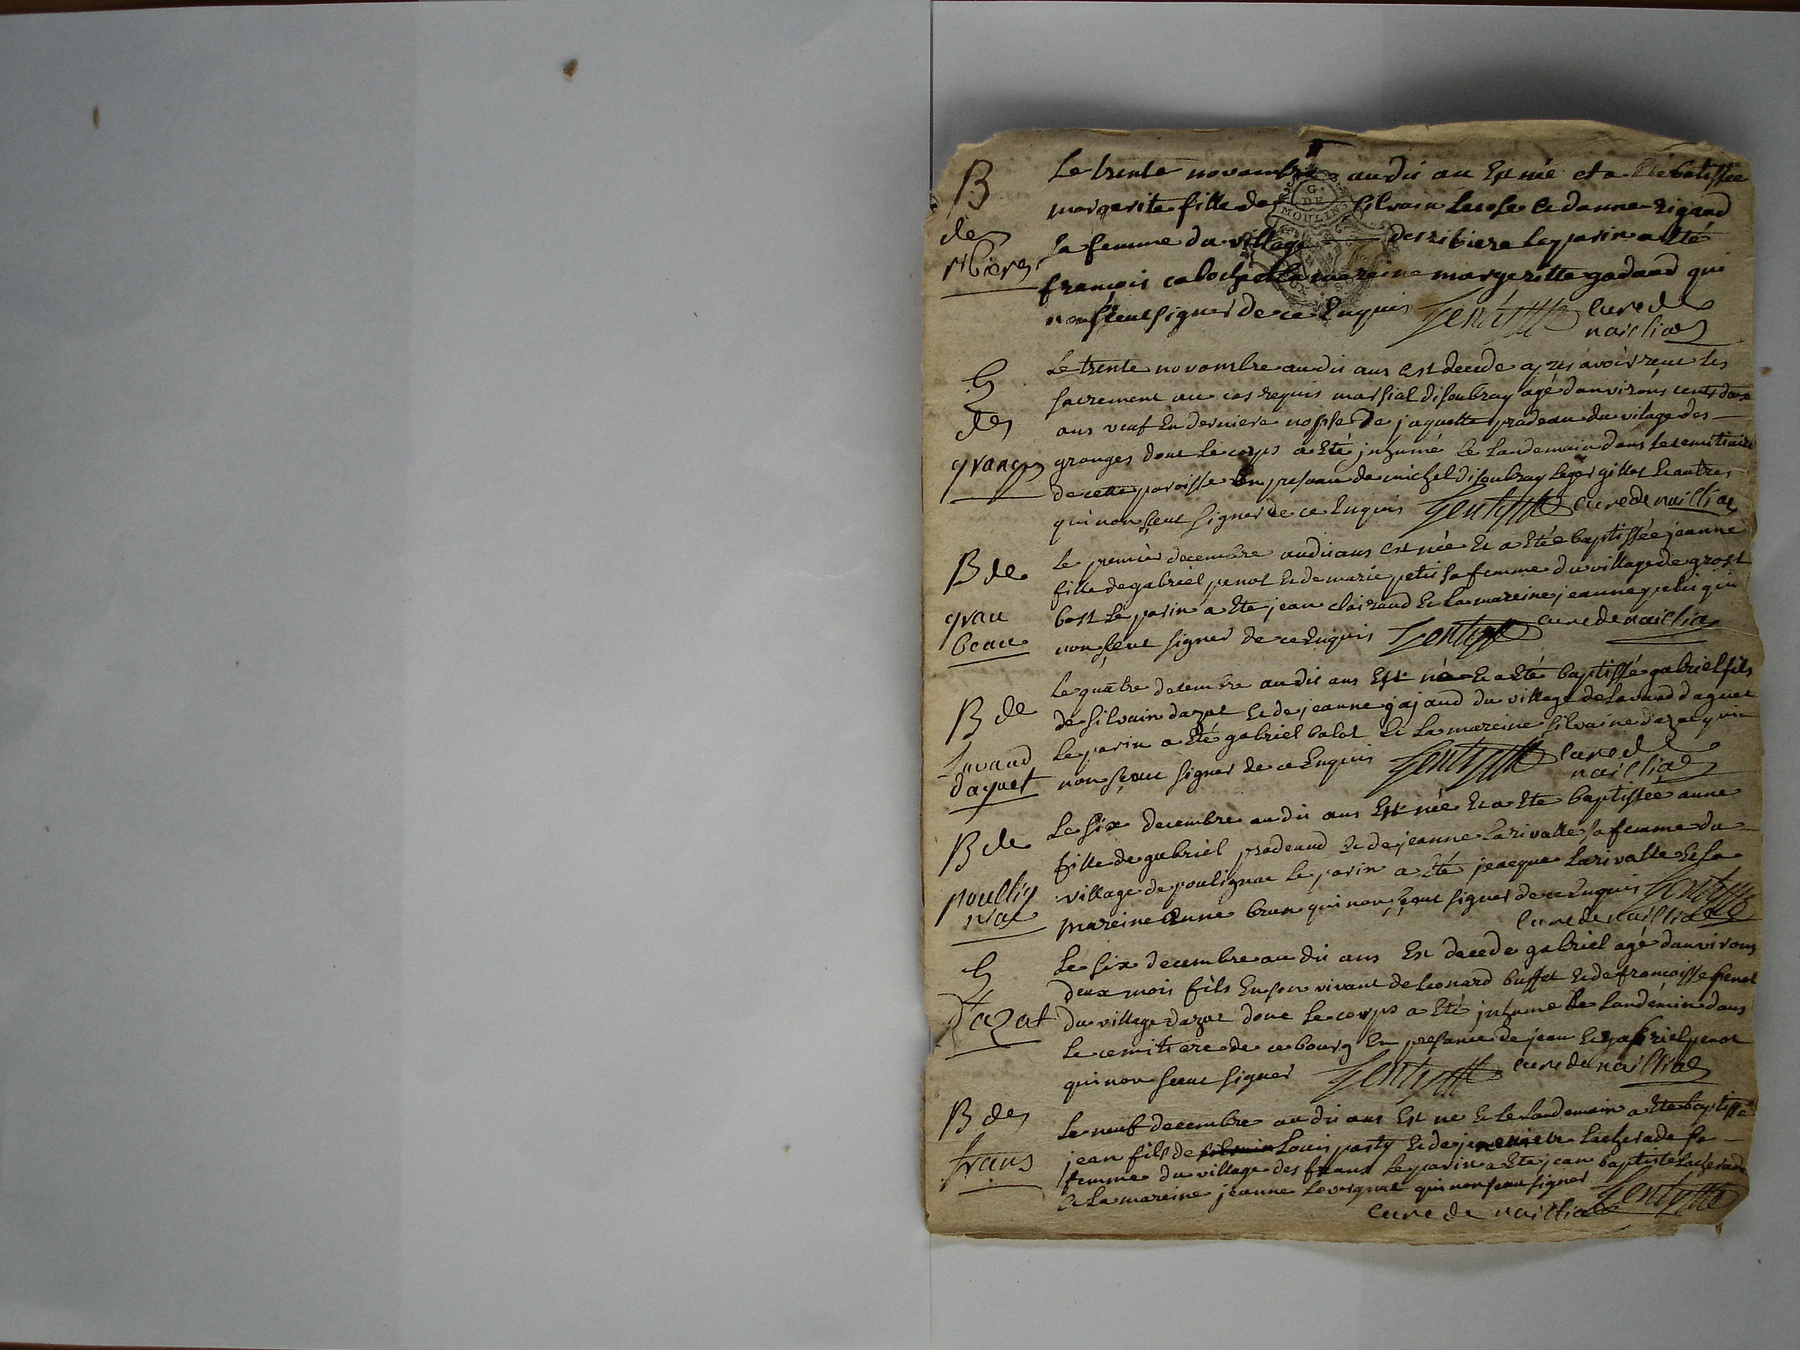 B
de
ribieres
Le trente novembre audit an Est née et a Eté batissée
margerite fille de silvain Lerose Et danne rigaud
sa femme du village des ribiere Le parin a Eté
francois caboche Et la mareine margeritte godard qui
non sceut signer de ce Enquis Gentytte curé de
naillac
G. DE MOULINS
E
des
granges
Le trente novembre audit ans Est decede apres avoir receu les
sacrement au cas requis marsial disoubray agé danvirons cents
ans veuf En derniere nopse de jaquette pradeau du vilage des
granges dont Le corps a Eté inhumé Le Landemain dans Le semitiaire
de cette paroisse En presance de michel disoubray Leger gillot Et autres
qui non sceut signer de ce Enquis Gentytte curé de naillac
B de
grau
beau
Le premièr decembre audit ans est née Et a Eté baptissée jeanne
fille de gabriel penot Et de marie petit sa femme du village de grost
bost Le parin a Ete jean clairaud Et La mareine jeanne qui
non sceut signer de ce Enquis Gentytte curé de naillac
B de
Lavaud
daguet
Le quatre decembre audit ans Est né Et a Eté baptissé gabriel fils
de silvain dazat Et de jeanne gajaud du village de Lavaud daguet
Le parin a Eté gabriel balot Et La mareine silvaine dazat qui
non sceut signer de ce Enquis Gentytte curé de
naillac
B de
poullig
niac
Le six decembre audit ans Est née Et a Ete baptissée anne
fille de gabriel pradeaud Et de jeanne Larivalle sa femme du
village de poulignac Le parin a Eté jeacque Larivalle Et La
mareine anne brun qui non sceut signer de ce Enquis Gentytte
curé de naillac
E
dazat
Le six decembre audit ans Est decede gabriel agé danvirons
deux mois fils En son vivant de Leonard buffet Et de francoisse penot
du village dazat dont Le corps a Eté inhume Le Landemin dans
Le cemitiere de ce bourg En presance de jean Et gabriel penot
qui non sceut signer Gentytte curé de naillac
B des
fraus
Le neuf decembre audit ans Est né Et Le Landemain a Ete baptissé
jean fils de Louis party Et de jenevieve Lacherade sa
femme du village des fraux Le parin a Ete jean baptiste Lacherade
Et La mareine jeanne Lavergnat qui non sceu signer Gentytte
curé de naillac